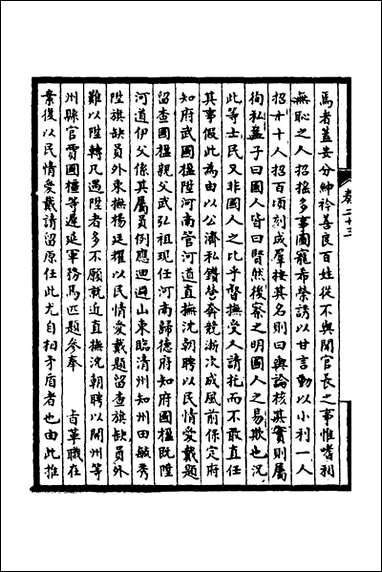 焉者蓋安分紳衿善良百姓從不與聞官長之事惟嗜利
無恥之人招搖多事圖寵希榮誘以甘言動以小利一人
招十十人招百頃刻成羣接其名則曰輿論核其實則屬
徇私孟子曰國人皆曰賢然後察之明國人之易欺也況
此等士民又非國人之比乎督撫受人請托而不敢直任
其事假此為由以公濟私鑽營奔競漸次成風前保定府
知府武國楹陞河南管河道直撫沈朝聘以民情愛戴題
留查國楹親父武弘祖現任河南歸德府知府國楹既陞
河道伊父係其屬員例應迴避山東臨清州知州田敏秀
陞旗缺員外東撫楊廷耀以民情愛戴題留查旗缺員外
難以陞轉凡遇陞者多不願就近直撫沈朝聘以開州等
州縣官賈國楹等遲延軍務馬匹題參奉 旨革職在
案復以民情愛戴請留原任此尤自相矛盾者也由此推
卷二十三